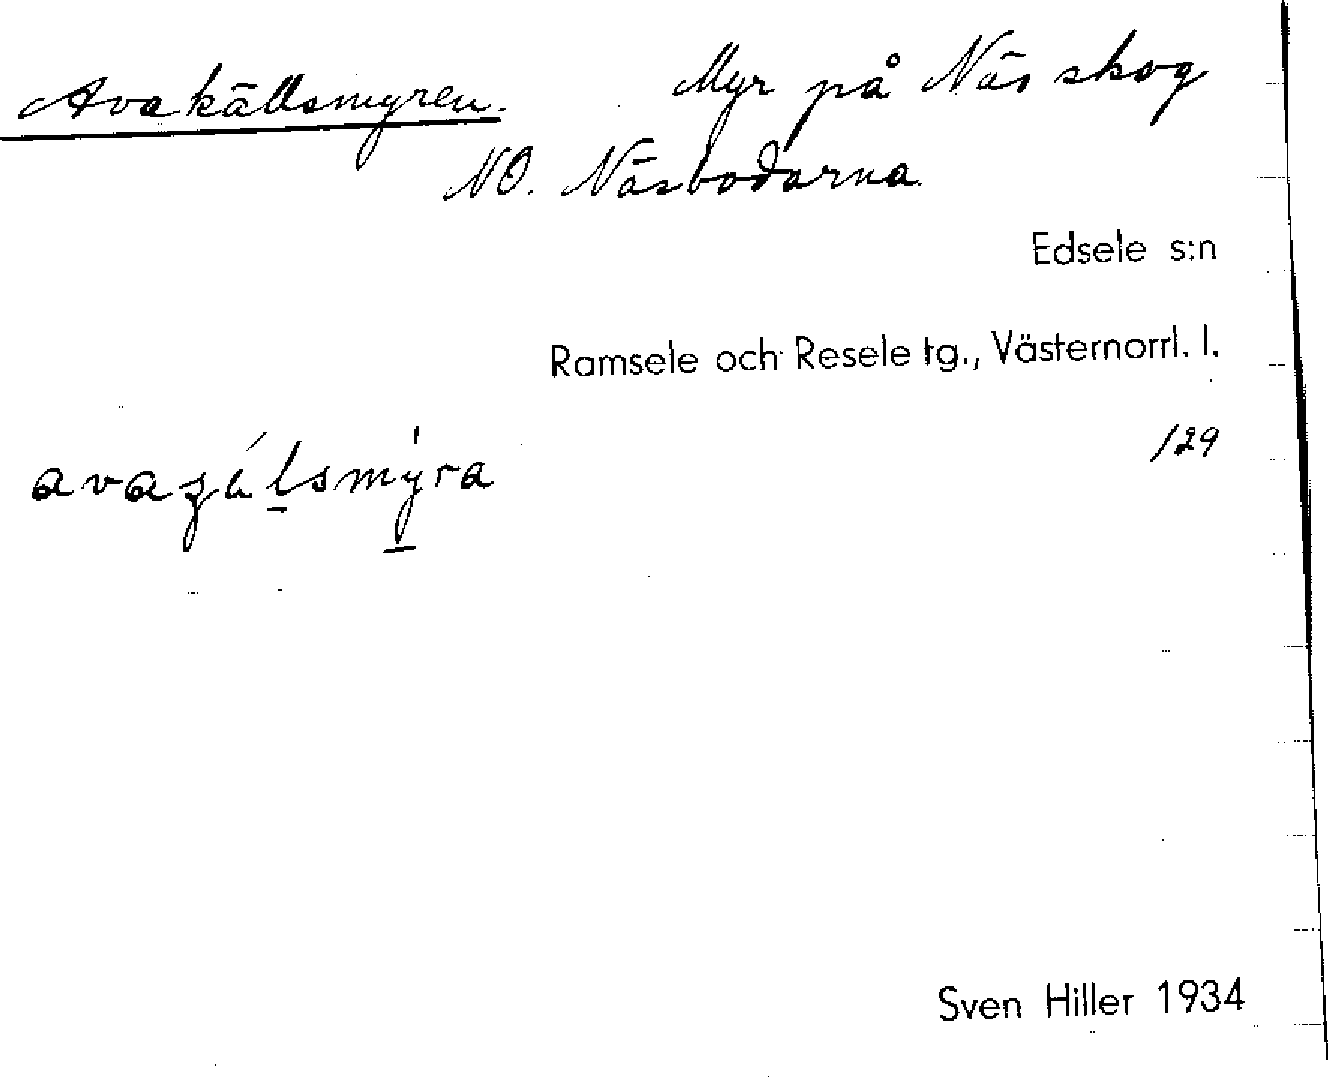 Avakällsmyren. Myr på Näs skog
NO. Näsbodarna
Edsele s:n
Ramsele och Resele tg., Västernorrl. l.
/29
Sven Hiller 1934